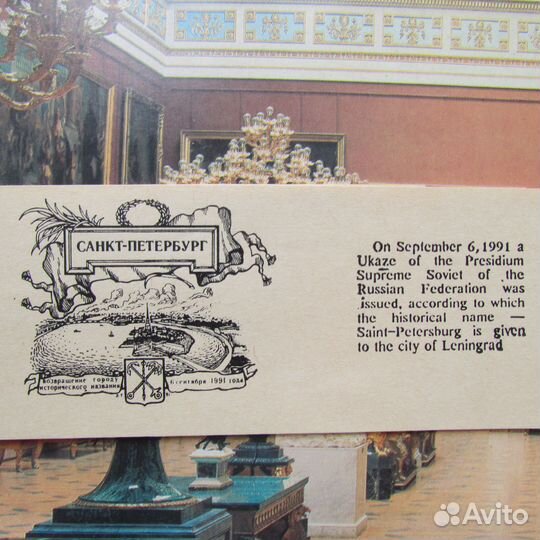 САНКТ-ПЕТЕРБУРГ
Возвращение городу
исторического названия
6 сентября 1991 года
On September 6, 1991 a
Ukaze of the Presidium
Supreme Soviet of the
Russian Federation was
issued, according to which
the historical name —
Saint-Petersburg is given
to the city of Leningrad
Avito